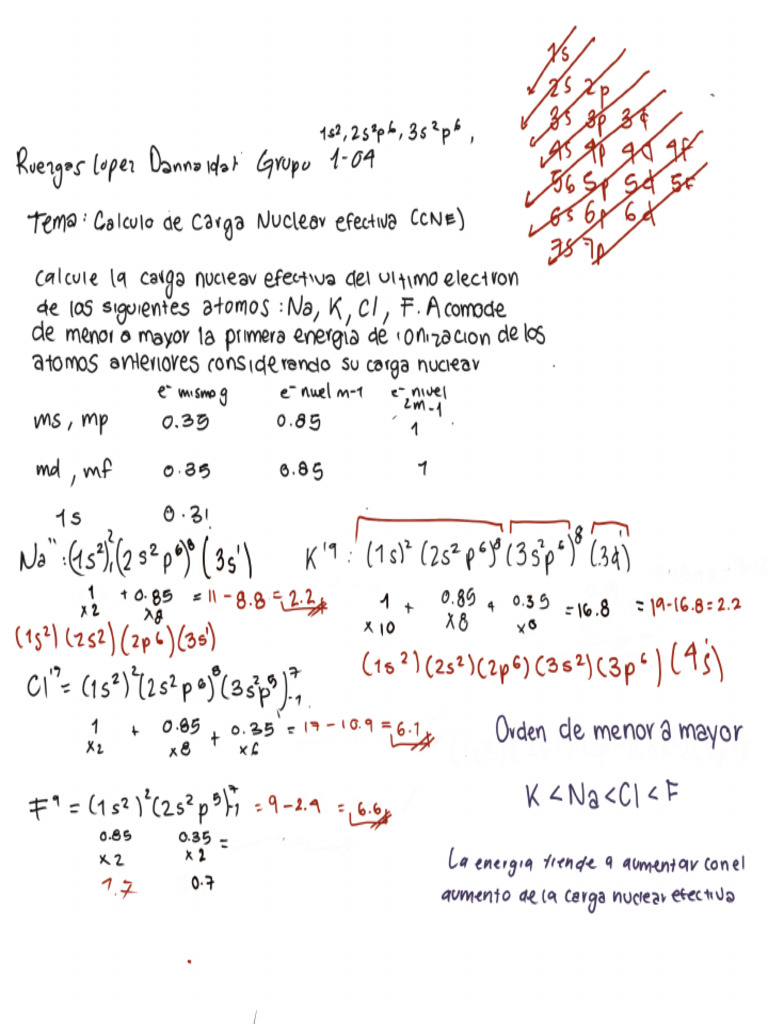 1s
2s 2p
3s 3p 3d
4s 4p 4d 4f
5s 5p 5d 5f
6s 6p 6d
7s 7p
1s², 2s²p⁶, 3s²p⁶,
Ruergas Lopez Dannaidat Grupo 1-04
Tema: Calculo de Carga Nuclear efectiva (CNE)
Calcule la carga nuclear efectiva del ultimo electron
de los siguientes atomos: Na, K, Cl, F. Acomode
de menor a mayor la primera energia de ionizacion de los
atomos anteriores considerando su carga nuclear
e⁻ mismo g e⁻ nuel m-1 e⁻ nivel 2m-1
ms, mp 0.35 0.85 1
md, mf 0.35 0.85 1
1s 0.31
Na¹¹: (1s²)² (2s²p⁶)⁸ (3s¹)
1 x2 + 0.85 x8 = 11 - 8.8 = 2.2
(1s²)(2s²)(2p⁶)(3s¹)
K¹⁹: (1s)² (2s²p⁶)⁸ (3s²p⁶)⁸ (3d¹)
1 x10 + 0.85 x8 + 0.35 x0 = 16.8 = 19-16.8 = 2.2
(1s²)(2s²)(2p⁶)(3s²)(3p⁶)(4s¹)
Cl¹⁷ = (1s²)² (2s²p⁶)⁸ (3s²p⁵)⁷ -1
1 x2 + 0.85 x8 + 0.35 x6 = 17 - 10.9 = 6.1
F⁹ = (1s²)² (2s²p⁵)⁷ -1 = 9 - 2.4 = 6.6
0.85 x2 0.35 x2 =
1.7 0.7
Orden de menor a mayor
K < Na < Cl < F
La energia tiende a aumentar con el
aumento de la carga nuclear efectiva